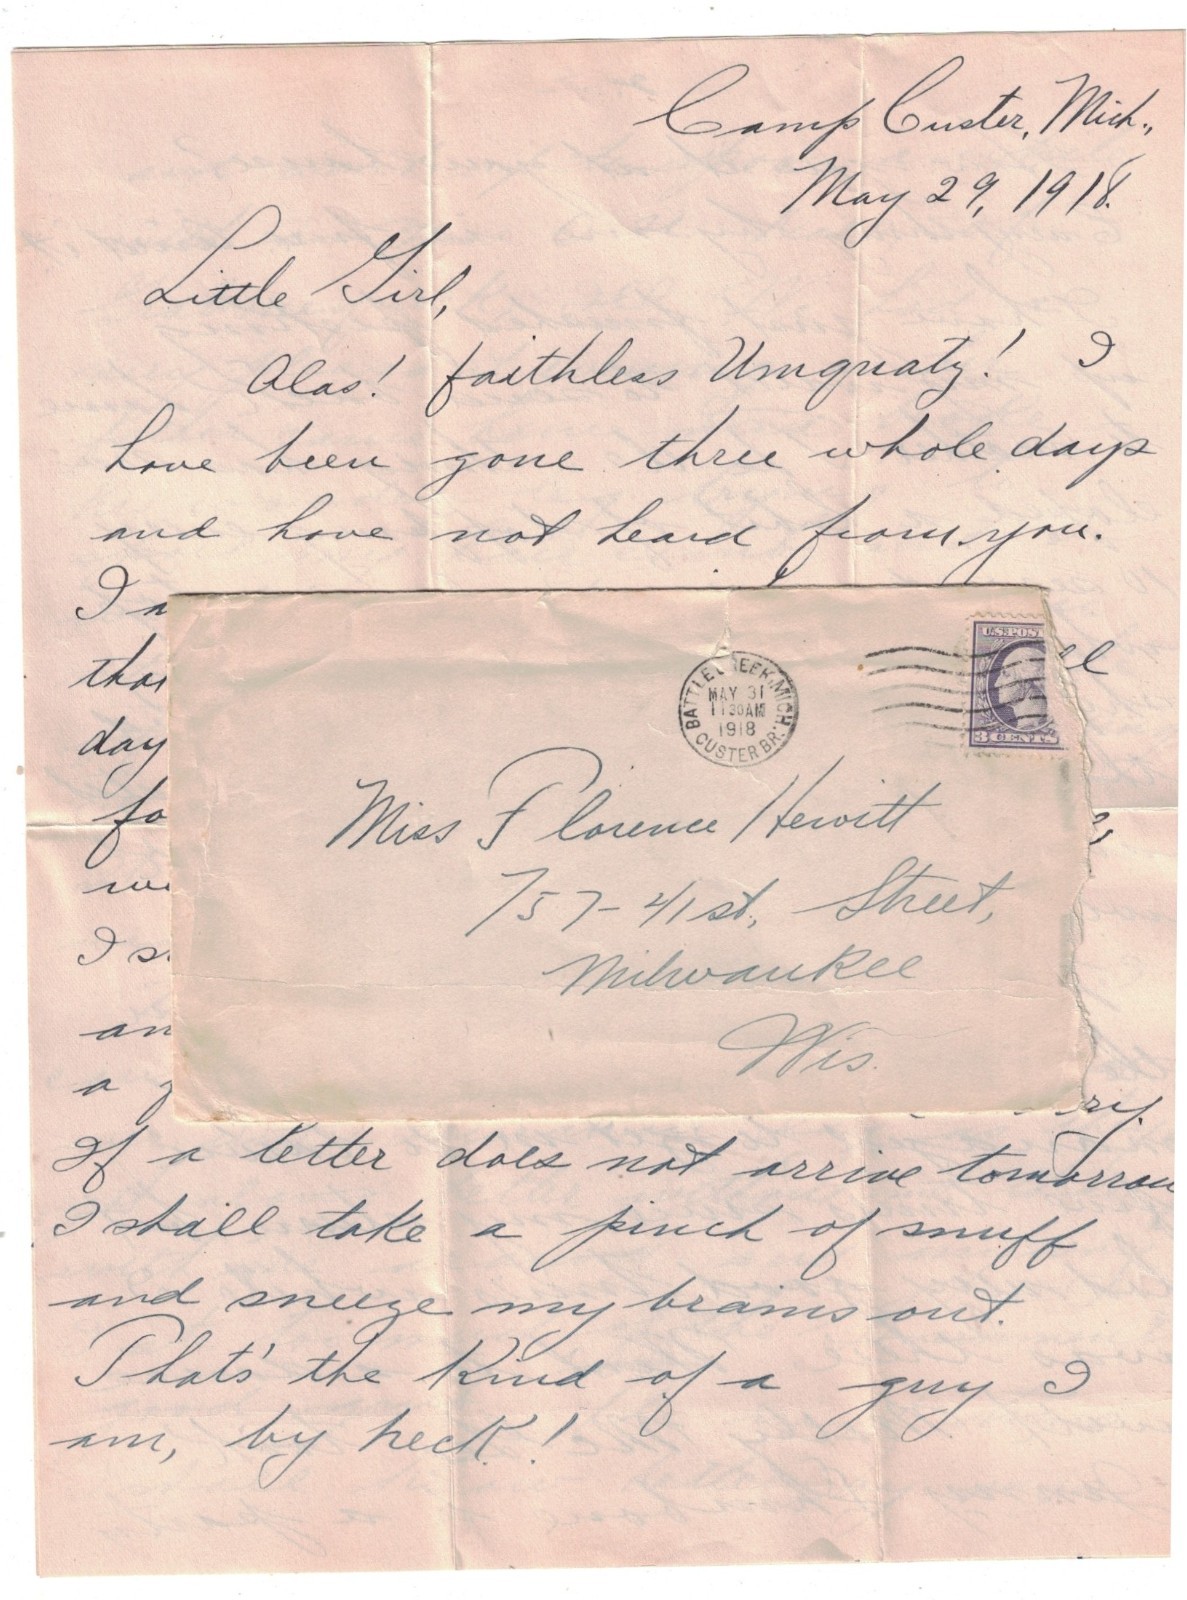 Camp Custer, Mich.,
May 29, 1918.
Little Girl,
Alas! faithless Umquaty! I
have been gone three whole days
and have not heard from you.
I
day
I
a
If a letter does not arrive tomorrow
I shall take a pinch of snuff
and sneeze my brains out.
That's the kind of a guy I
am, by heck!
BATTLE CREEK, MICH.
MAY 31
11 30 AM
1918
CUSTER BR.
U.S. POST
3 CENTS
Miss Florence Hewitt
757-41st, Street,
Milwaukee
Wis.